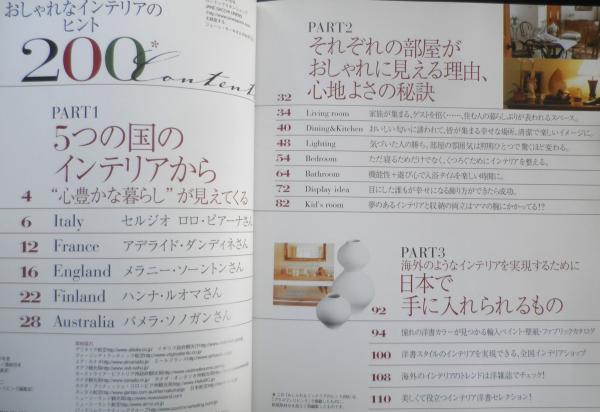 おしゃれなインテリアの
ヒント
200*
Contents
PART1
5つの国の
インテリアから
4 “心豊かな暮らし”が見えてくる
6 Italy セルジオ ロロ・ピアーナさん
12 France アデライド・ダンディネさん
16 England メラニー・ソーントンさん
22 Finland ハンナ・ルオマさん
28 Australia パメラ・ソノガンさん
PART2
それぞれの部屋が
おしゃれに見える理由、
32 心地よさの秘訣
34 Living room 家族が集まる、ゲストを招く……、住む人の暮らしぶりが表われるスペース。
40 Dining&Kitchen おいしい匂いに誘われて、皆が集まる幸せな場所。清潔で楽しいイメージに。
48 Lighting 気づいた人の勝ち。部屋の雰囲気は照明ひとつで驚くほど変わる。
54 Bedroom ただ寝るためだけでなく、くつろぐためにインテリアを整える。
64 Bathroom 機能性+遊び心で入浴タイムを楽しい時間に。
72 Display idea 目にした誰もが幸せになる飾り方ができたら成功。
82 Kid's room 夢のあるインテリアと収納の両立はママの腕にかかってる!?
PART3
海外のようなインテリアを実現するために
日本で
92 手に入れられるもの
94 憧れの洋書カラーが見つかる輸入ペイント・壁紙・ファブリックカタログ
100 洋書スタイルのインテリアを実現できる、全国インテリアショップ
108 海外のインテリアのトレンドは洋雑誌でチェック!
110 美しくて役立つインテリア洋書セレクション!